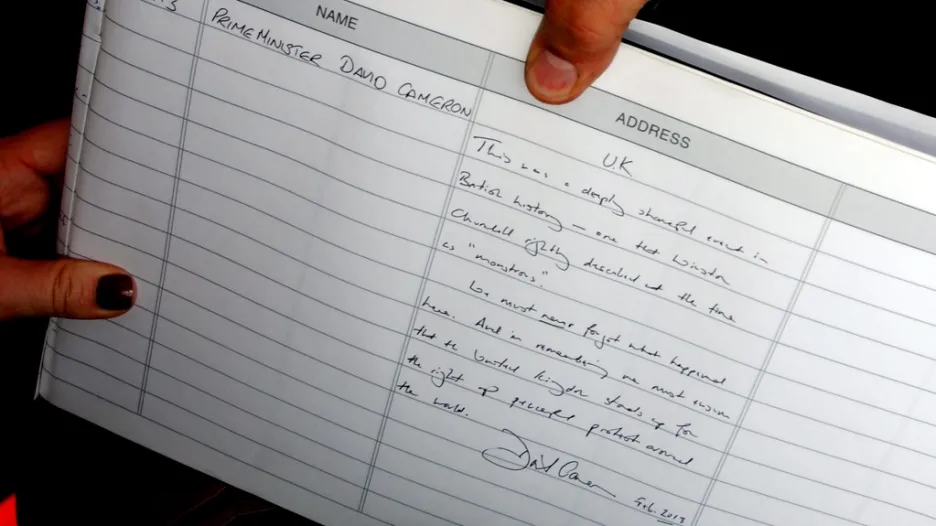 NAME
ADDRESS
13
PRIME MINISTER DAVID CAMERON
U.K
This was a deeply shameful event in
British history – one that Winston
Churchill rightly described at the time
as "monstrous".
We must never forget what happened
here. And in remembering we must ensure
that the United Kingdom stands up for
the right of peaceful protest around
the world.
David Cameron
Feb. 2013